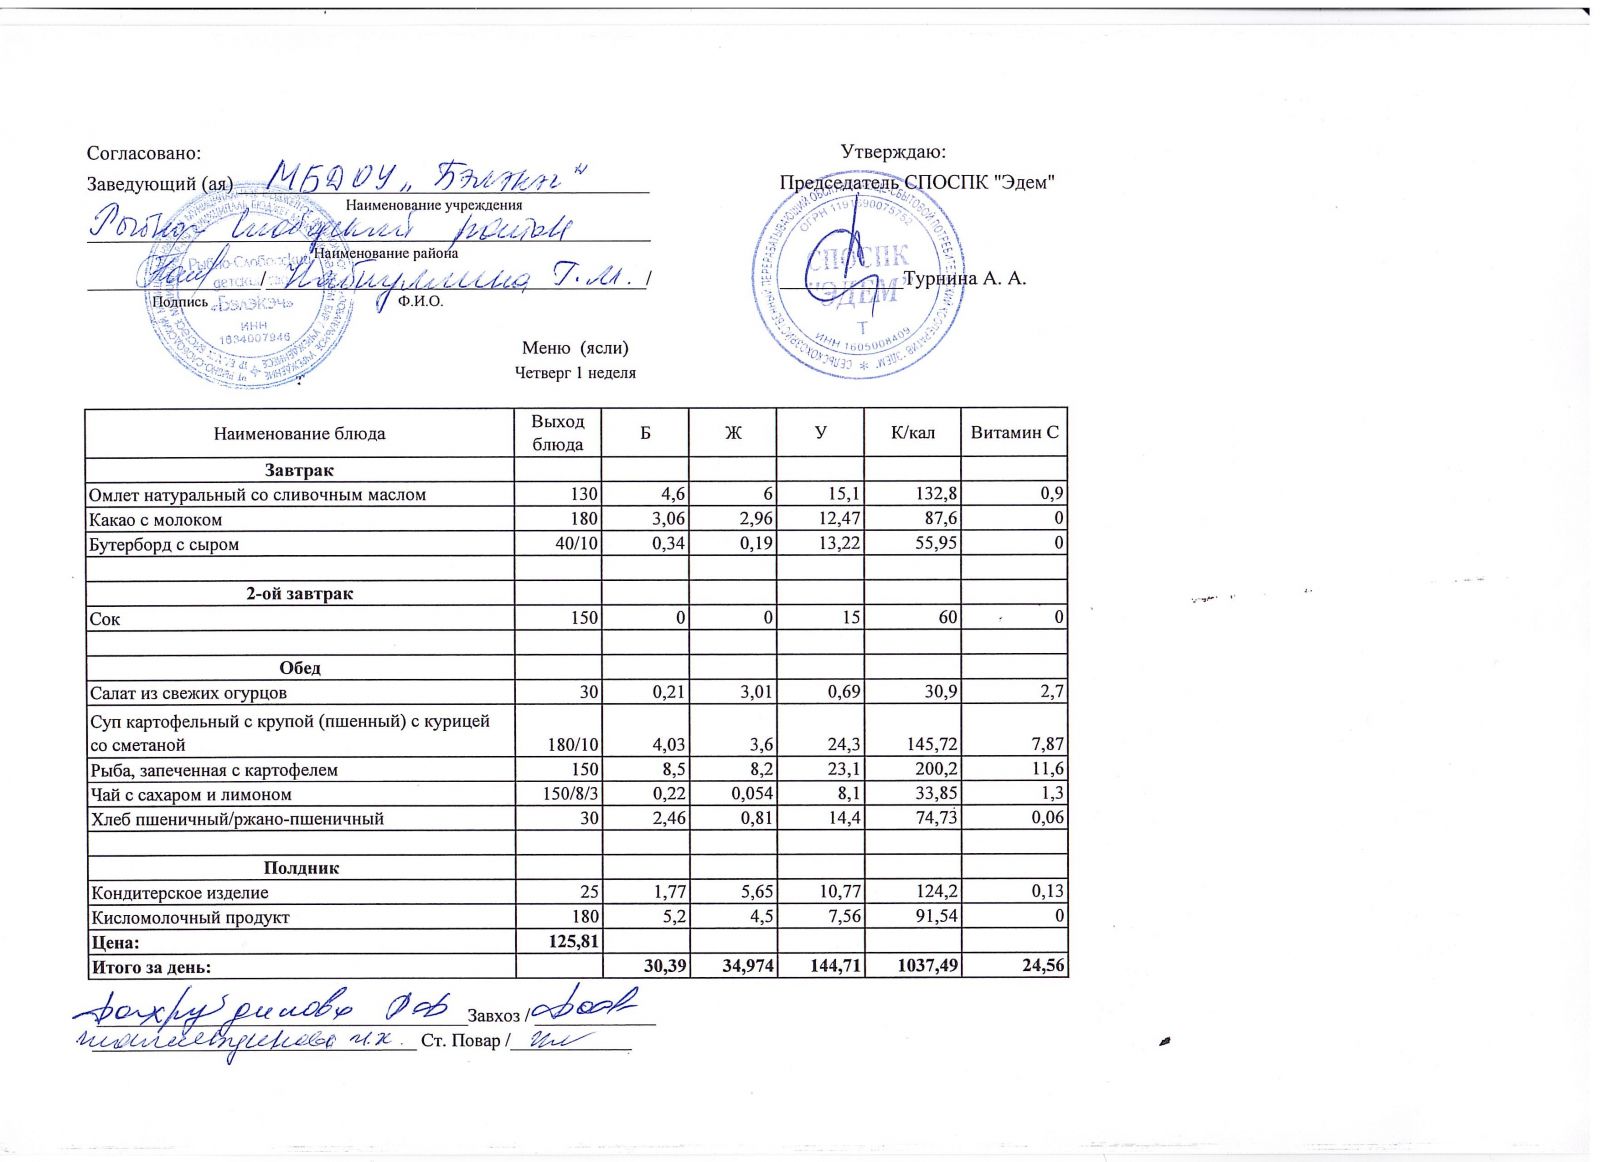 Согласовано:
Утверждаю:
Заведующий (ая) МБДОУ „Бэлэкэч"
Председатель СПОСПК "Эдем"
Наименование учреждения
Рыбно Слободский район
Наименование района
/ Набиуллина Г.М. /
Турнина А. А.
Подпись Ф.И.О.
Рыбно-Слободский
детский сад
«Бэлэкэч»
ИНН
1634007946
ОГРН 1191690075752
СПОСПК
"ЭДЕМ"
Т
ИНН 1605008409
Меню (ясли)
Четверг 1 неделя
Наименование блюда Выход блюда Б Ж У К/кал Витамин С
Завтрак
Омлет натуральный со сливочным маслом 130 4,6 6 15,1 132,8 0,9
Какао с молоком 180 3,06 2,96 12,47 87,6 0
Бутерборд с сыром 40/10 0,34 0,19 13,22 55,95 0
2-ой завтрак
Сок 150 0 0 15 60 0
Обед
Салат из свежих огурцов 30 0,21 3,01 0,69 30,9 2,7
Суп картофельный с крупой (пшенный) с курицей
со сметаной 180/10 4,03 3,6 24,3 145,72 7,87
Рыба, запеченная с картофелем 150 8,5 8,2 23,1 200,2 11,6
Чай с сахаром и лимоном 150/8/3 0,22 0,054 8,1 33,85 1,3
Хлеб пшеничный/ржано-пшеничный 30 2,46 0,81 14,4 74,73 0,06
Полдник
Кондитерское изделие 25 1,77 5,65 10,77 124,2 0,13
Кисломолочный продукт 180 5,2 4,5 7,56 91,54 0
Цена: 125,81
Итого за день: 30,39 34,974 144,71 1037,49 24,56
Фахрудинова Завхоз /
Ст. Повар /